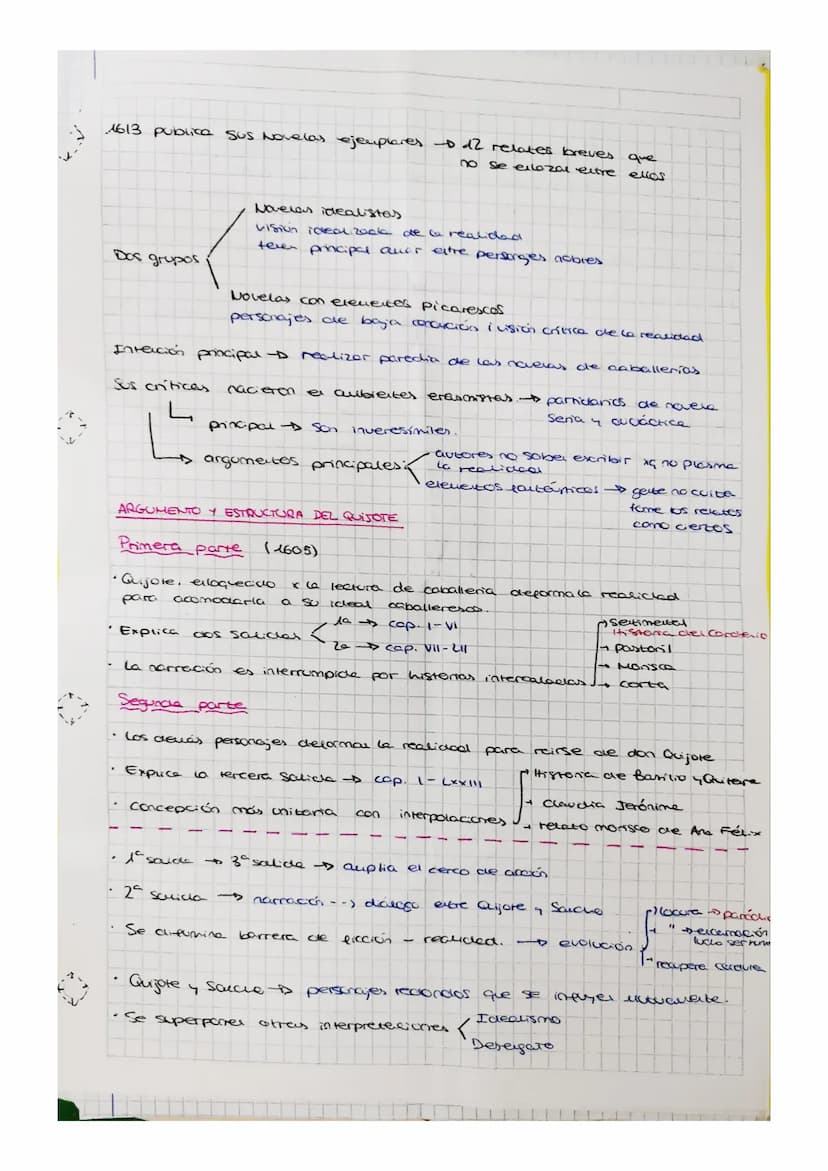 1613 publica sus Novelas ejemplares → 12 relatos breves que
no se enlazan entre ellos
Novelas idealistas
visión idealizada de la realidad
tienen principal amor entre personajes nobles
Dos grupos
Novelas con elementos picarescos
personajes de baja condición i visión crítica de la realidad
Intención principal → realizar parodia de las novelas de caballerías
Sus críticas nacieron en ambientes erasmistas → partidarios de novela
seria y didáctica
principal → son inverosímiles.
argumentos principales:
autores no saben escribir xq no plasma
la realidad
elementos fantásticos → gente no culta
tome los relatos
como ciertos
ARGUMENTO Y ESTRUCTURA DEL QUIJOTE
Primera parte (1605)
· Quijote, enloquecido x la lectura de caballería deforma la realidad
para acomodarla a su ideal caballeresco.
· Explica dos salidas
1a → cap. I-VI
2a → cap. VII-LII
· La narración es interrumpida por historias intercaladas
sentimental
Historia del Cardenio
→ pastoril
→ Morisca
→ corta
Segunda parte
· Los demás personajes deforman la realidad para reirse de don Quijote
· Explica la tercera salida → cap. I-LXXIII
· Concepción más unitaria con interpolaciones
Historia de Basilio y Quiteria
→ Claudia Jerónima
→ relato morisco de Ana Félix
· 1ª salida → 3ª salida → amplia el cerco de acción
· 2ª salida → narración --> diálogo entre Quijote y Sancho
· Se difumina barrera de ficción - realidad. → evolución
locura → parodia
" →
→ recupera cordura
· Quijote y Sancho → personajes redondos que se influyen mutuamente.
· Se superponen otras interpretaciones
Idealismo
Desengaño